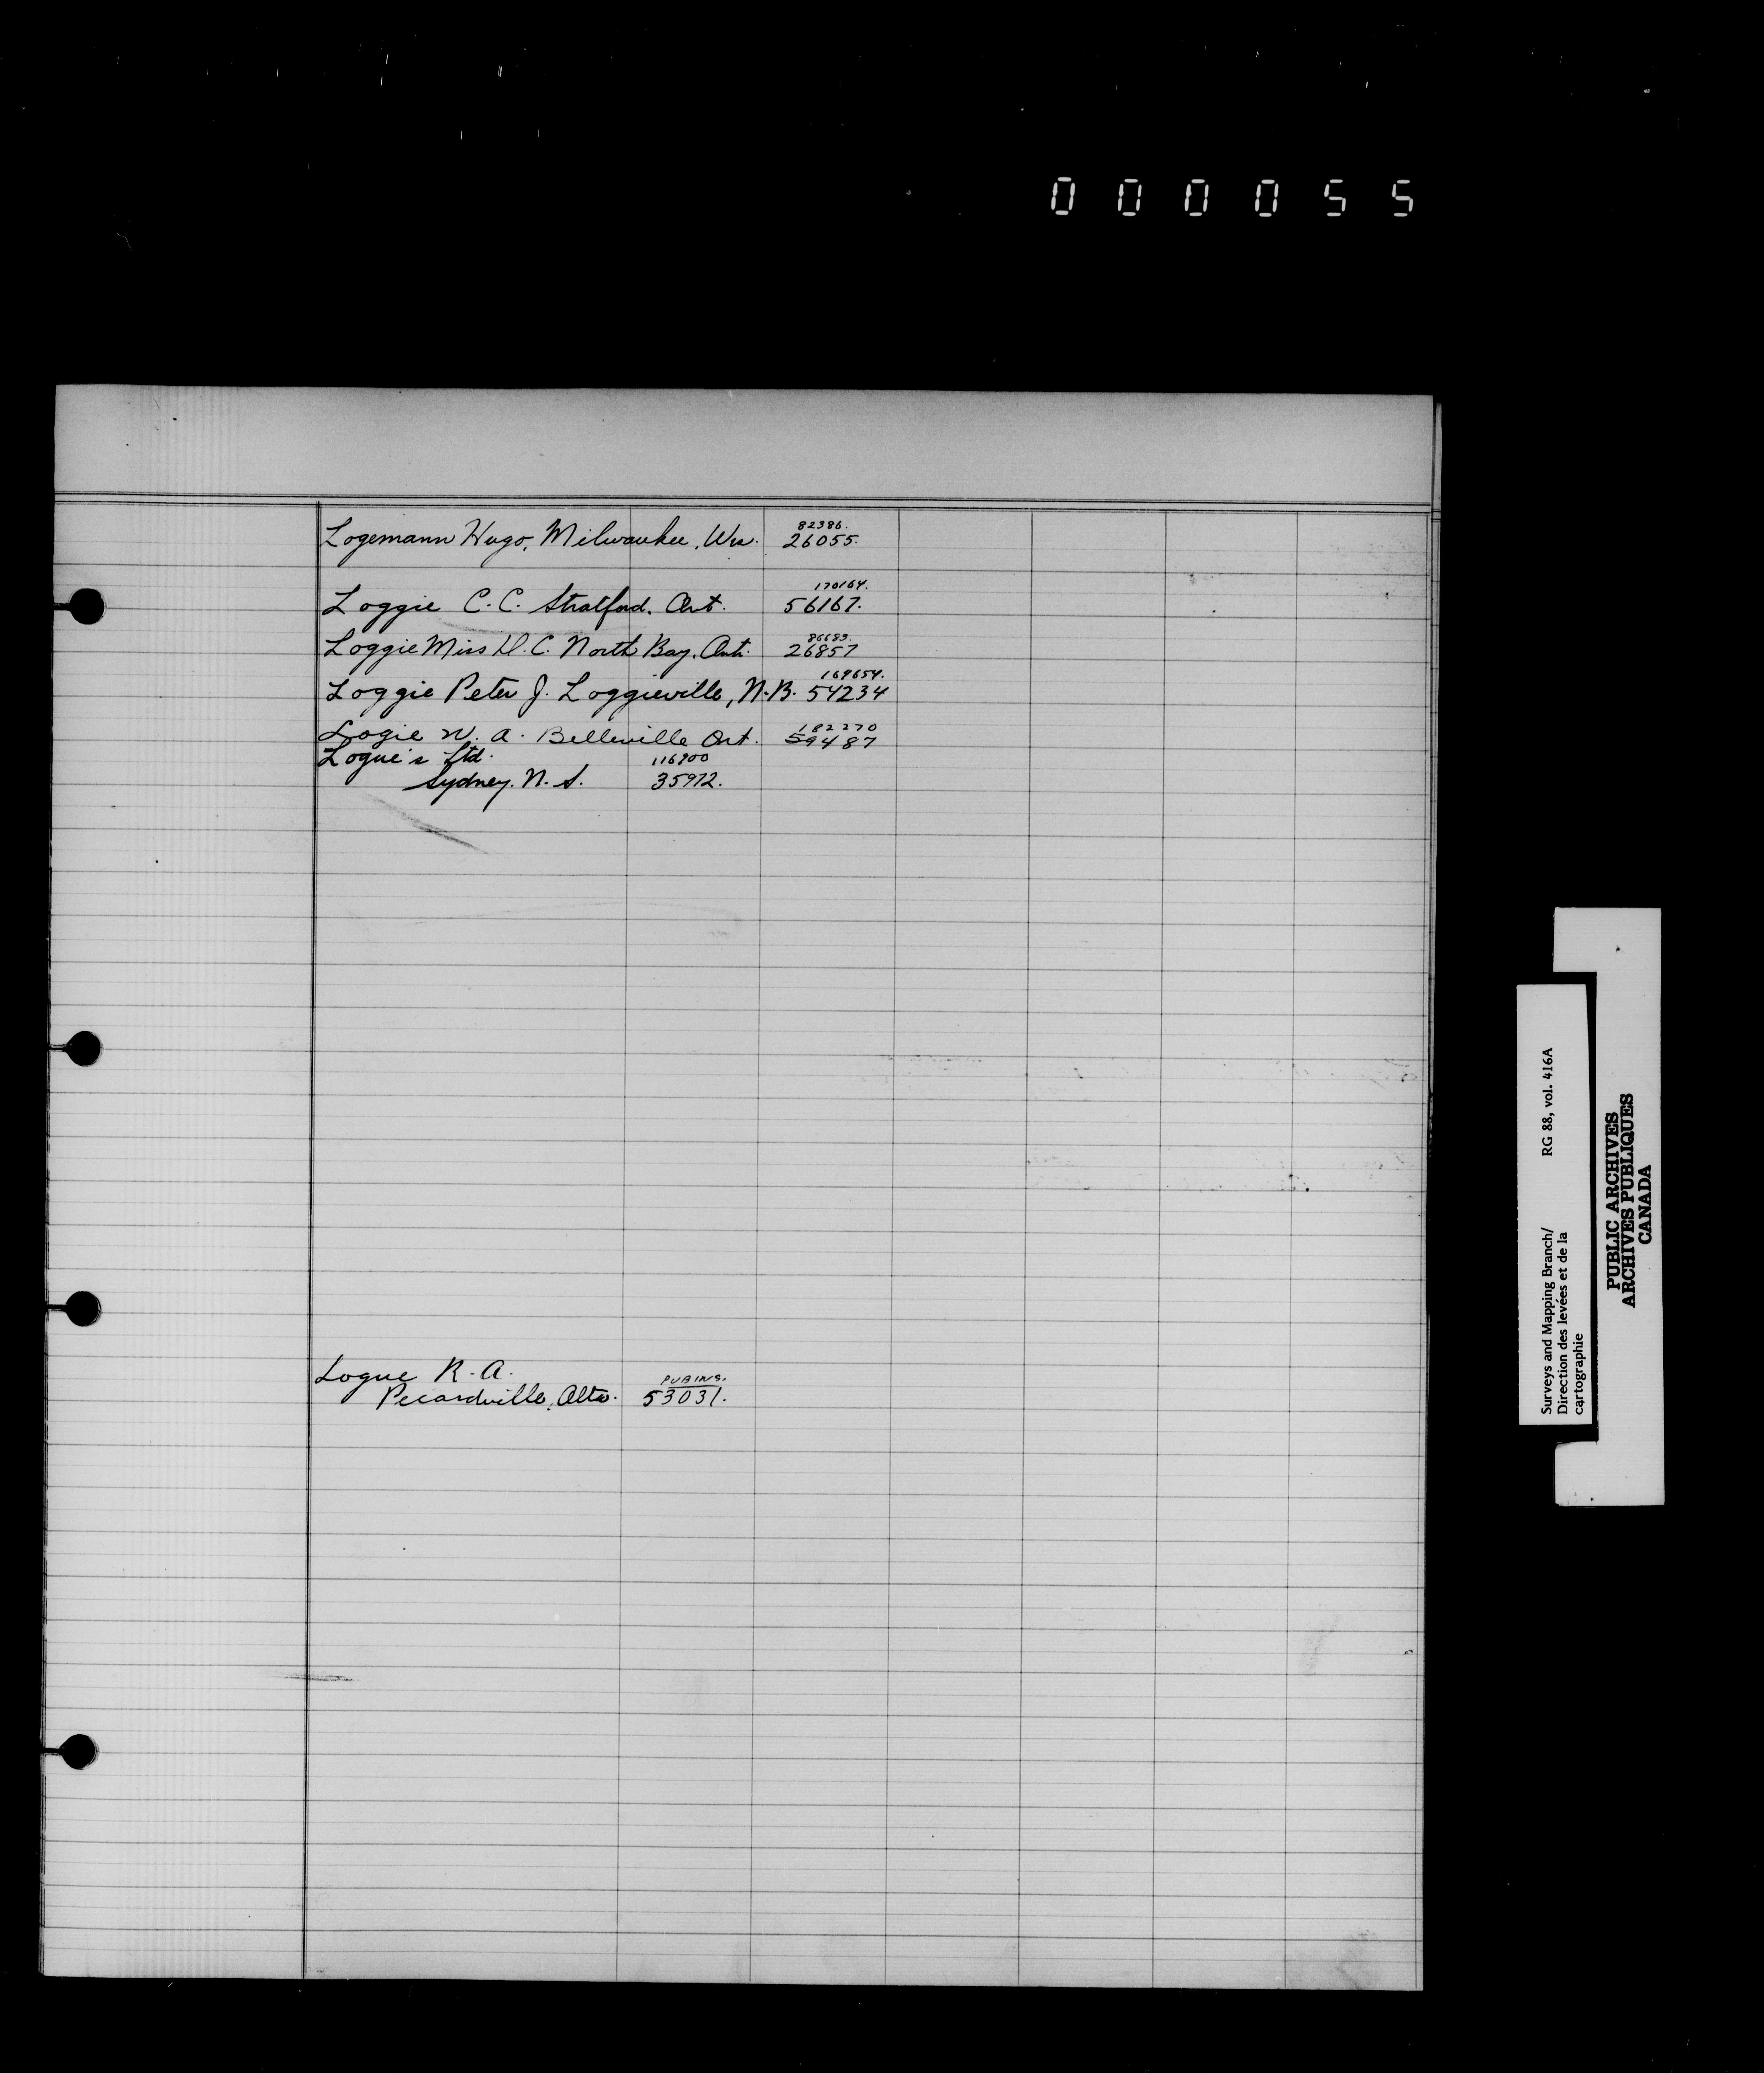 000055
82386.
Logemann Hugo, Milwaukee, Wis. 26055.
170164.
Loggie C. C. Stratford. Ont. 56167.
86683.
Loggie Miss D. C. North Bay. Ont. 26857
169654.
Loggie Peter J. Loggieville, N.B. 54234
182270
Logie W. A. Belleville Ont. 59487
Logue's Ltd.
116900
Sydney. N. S. 35972.
Logue R. A.
PUBINS.
Pecardville, Alta. 53031.
Surveys and Mapping Branch/ RG 88, vol. 416A
Direction des levées et de la
cartographie
PUBLIC ARCHIVES
ARCHIVES PUBLIQUES
CANADA